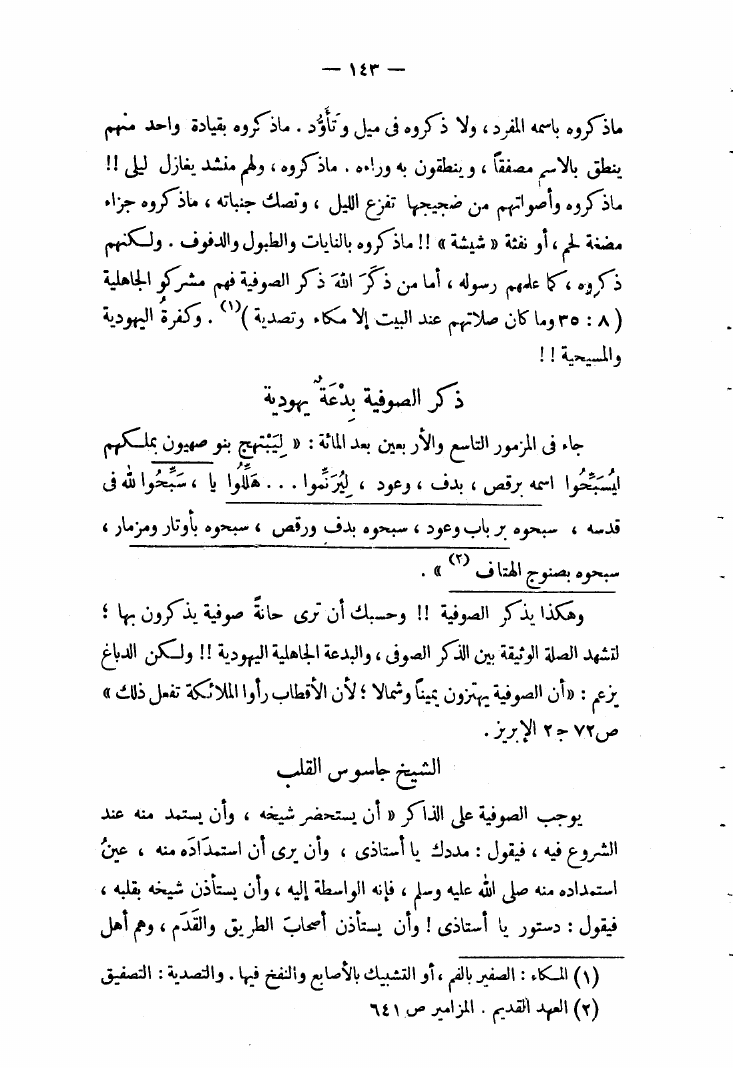 — ١٤٣ —
ماذكروه باسمه المفرد ، ولا ذكروه فى ميل وتَأَوُّد . ماذكروه بقيادة واحد منهم
ينطق بالاسم مصفقاً ، وينطقون به وراءه . ماذكروه ، ولهم منشد يغازل ليلى !!
ماذكروه وأصواتهم من ضجيجها تفزع الليل ، وتصك جنباته ، ماذكروه جزاء
مضغة لحم ، أو نفثة « شيشة » !! ماذكروه بالنايات والطبول والدفوف . ولكنهم
ذكروه ، كما علمهم رسوله ، أما من ذَكَرَ اللهَ ذكر الصوفية فهم مشركو الجاهلية
( ٨ : ٣٥ وما كان صلاتهم عند البيت إلا مكاء وتصدية )(١) . وكفرةُ اليهودية
والمسيحية !!
ذكر الصوفية بِدْعَة يهودية
جاء فى المزمور التاسع والأربعين بعد المائة : « لِيَبْتهج بنو صهيون بملكهم
ليُسَبِّحُوا اسمه برقص ، بدف ، وعود ، لِيُرَنِّموا . . . هَلِّلُوا يا ، سَبِّحُوا لله فى
قدسه ، سبحوه برباب وعود ، سبحوه بدف ورقص ، سبحوه بأوتار ومزمار ،
سبحوه بصنوج الهتاف (٢) » .
وهكذا يذكر الصوفية !! وحسبك أن ترى حانةً صوفية يذكرون بها ؛
لتشهد الصلة الوثيقة بين الذكر الصوفى ، والبدعة الجاهلية اليهودية !! ولكن الدباغ
يزعم : « أن الصوفية يهتزون يميناً وشمالا ؛ لأن الأقطاب رأوا الملائكة تفعل ذلك »
ص٧٢ ج٢ الإبريز .
الشيخ جاسوس القلب
يوجب الصوفية على الذاكر « أن يستحضر شيخه ، وأن يستمد منه عند
الشروع فيه ، فيقول : مددك يا أستاذى ، وأن يرى أن استمدَادَه منه ، عينُ
استمداده منه صلى الله عليه وسلم ، فإنه الواسطة إليه ، وأن يستأذن شيخه بقلبه ،
فيقول : دستور يا أستاذى ! وأن يستأذن أصحابَ الطريق والقَدَم ، وهم أهل
(١) المكاء : الصفير بالفم ، أو التشبيك بالأصابع والنفخ فيها . والتصدية : التصفيق
(٢) العهد القديم . المزامير ص ٦٤١